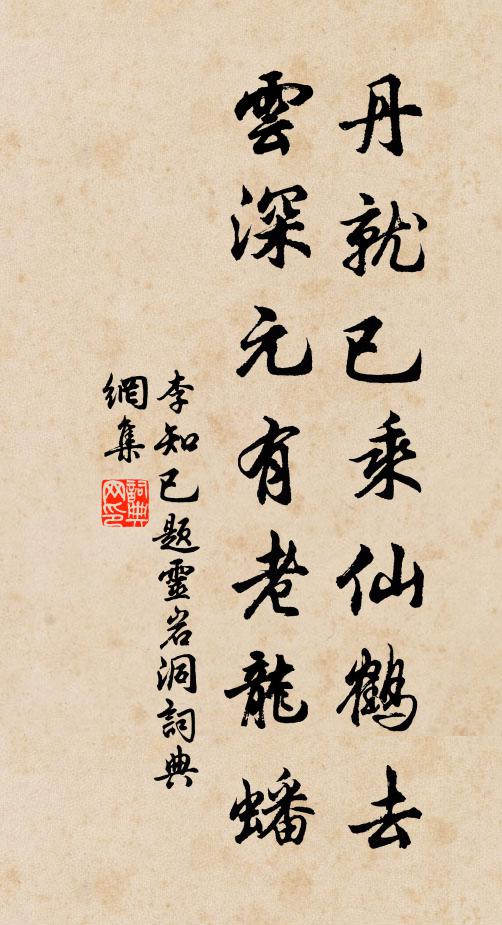 丹就已乘仙鶴去
雲深元有老龍蟠
李知已題靈岩洞詞典
網集
詞典網印